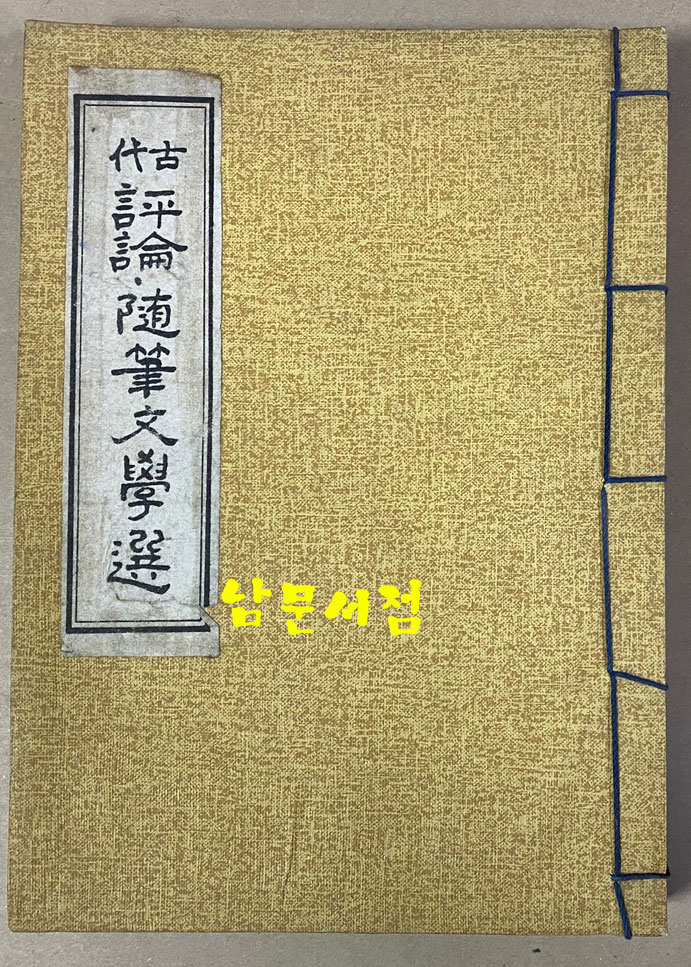 古代
評論·随筆文學選
남문서점